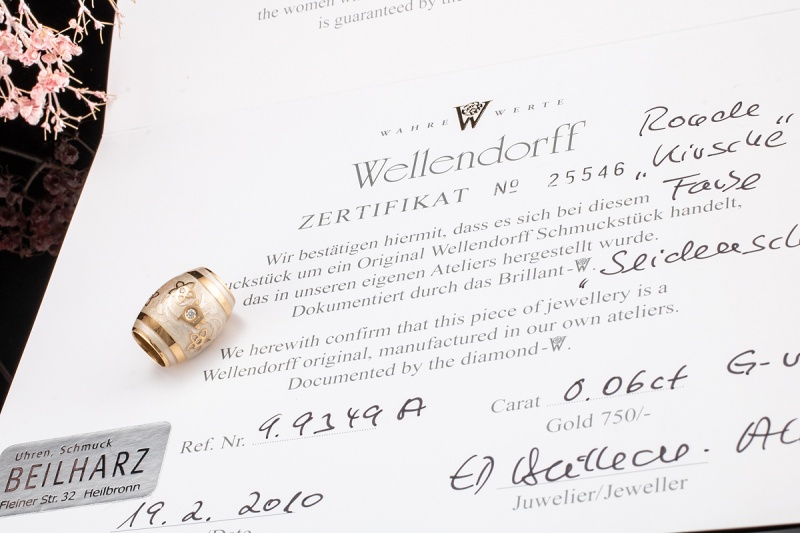 the women
is guaranteed by the
WAHRE W WERTE
Wellendorff
ZERTIFIKAT Nº 25546
Ronde
"Kirsche"
Farbe
"Seidensch
Wir bestätigen hiermit, dass es sich bei diesem
uckstück um ein Original Wellendorff Schmuckstück handelt,
das in unseren eigenen Ateliers hergestellt wurde.
Dokumentiert durch das Brillant-W.
We herewith confirm that this piece of jewellery is a
Wellendorff original, manufactured in our own ateliers.
Documented by the diamond-W.
Ref. Nr. 9.9349 A
Carat 0.06ct G-
Gold 750/-
Juwelier/Jeweller
19.2.2010
/Date
Uhren, Schmuck
BEILHARZ
Fleiner Str. 32 Heilbronn